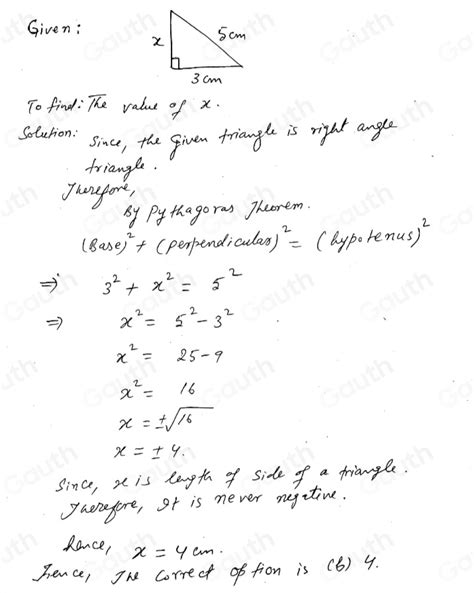 Given:
x
5cm
3 cm
To find: The value of x.
Solution: Since, the given triangle is right angle
triangle.
Therefore,
By Pythagoras Theorem.
(Base)² + (perpendicular)² = (hypotenus)²
⇒ 3² + x² = 5²
⇒ x² = 5² - 3²
x² = 25 - 9
x² = 16
x = ±√16
x = ± 4.
Since, x is length of side of a triangle.
Therefore, It is never negative.
hence, x = 4 cm.
Hence, The correct option is (b) 4.
Gauth